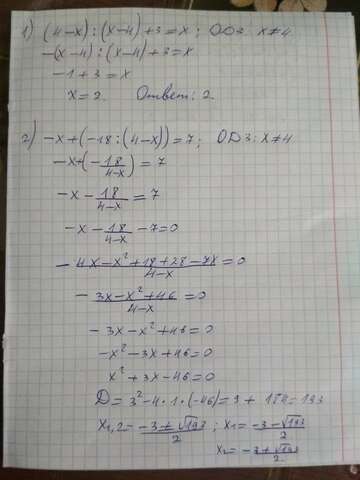 1) (4-x) : (x-4) + 3 = x ; ОДЗ: x≠4
-(x-4) : (x-4) + 3 = x
-1 + 3 = x
x = 2. Ответ: 2.
2) -x + (-18 : (4-x)) = 7 ; ОДЗ: x≠4
-x + (- 18/(4-x)) = 7
-x - 18/(4-x) = 7
-x - 18/(4-x) - 7 = 0
- (4x - x² + 18 + 28 - 7x)/(4-x) = 0
- (3x - x² + 46)/(4-x) = 0
- 3x - x² + 46 = 0
-x² - 3x + 46 = 0
x² + 3x - 46 = 0
D = 3² - 4 · 1 · (-46) = 9 + 184 = 193
x₁,₂ = (-3 ± √193)/2 ; x₁ = (-3 - √193)/2
x₂ = (-3 + √193)/2